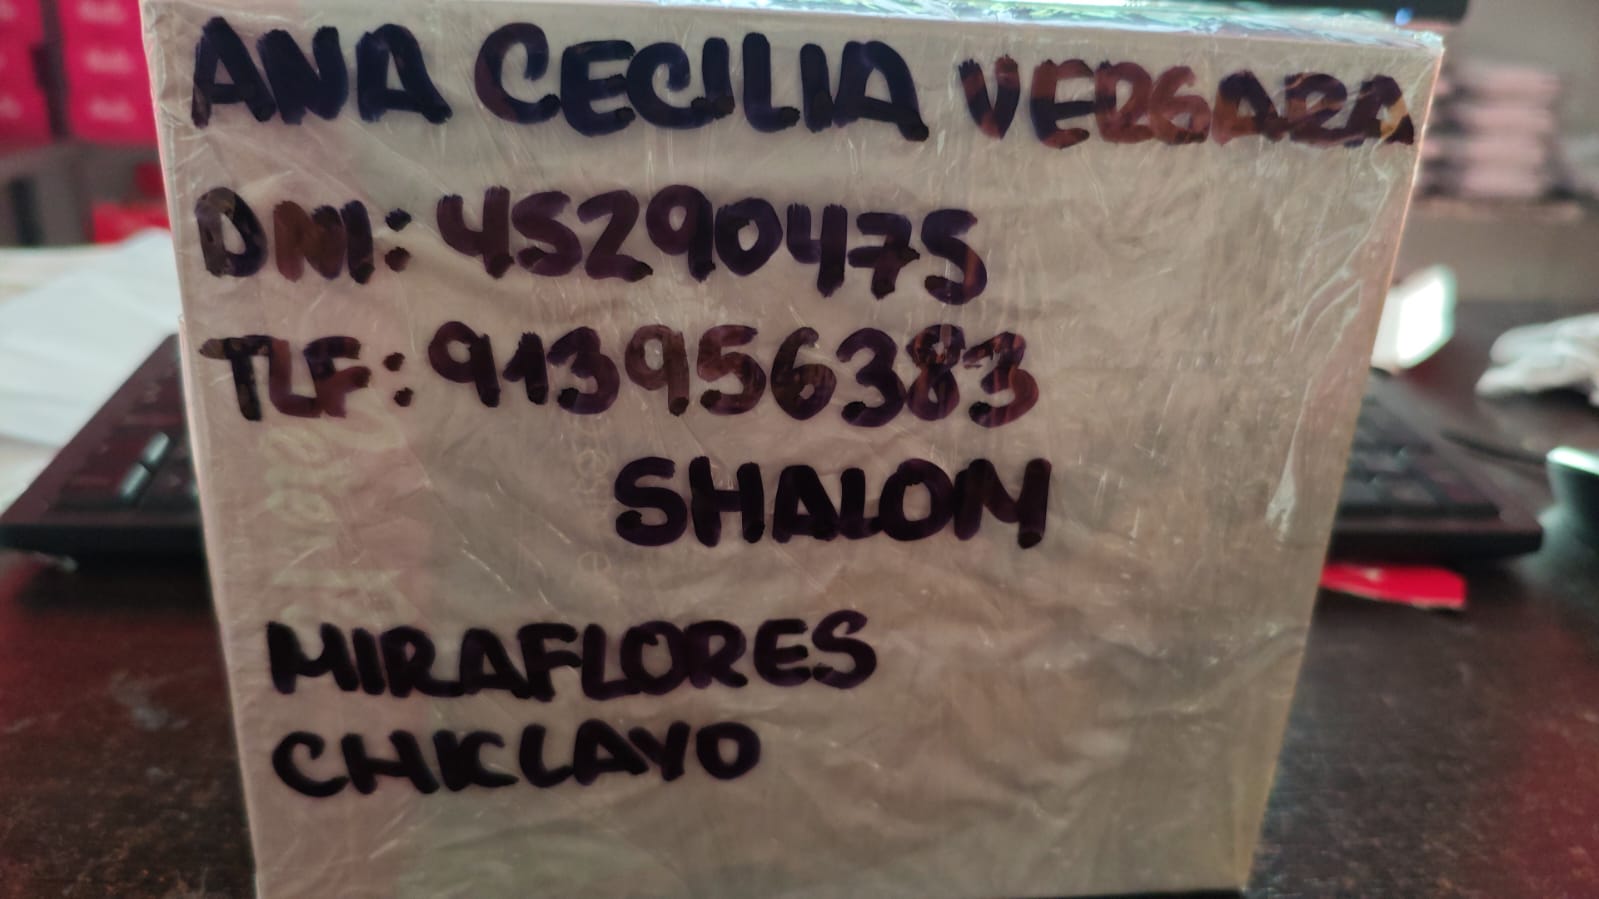 ANA CECILIA VERGARA
DNI: 45290475
TLF: 913956383
SHALOM
MIRAFLORES
CHICLAYO